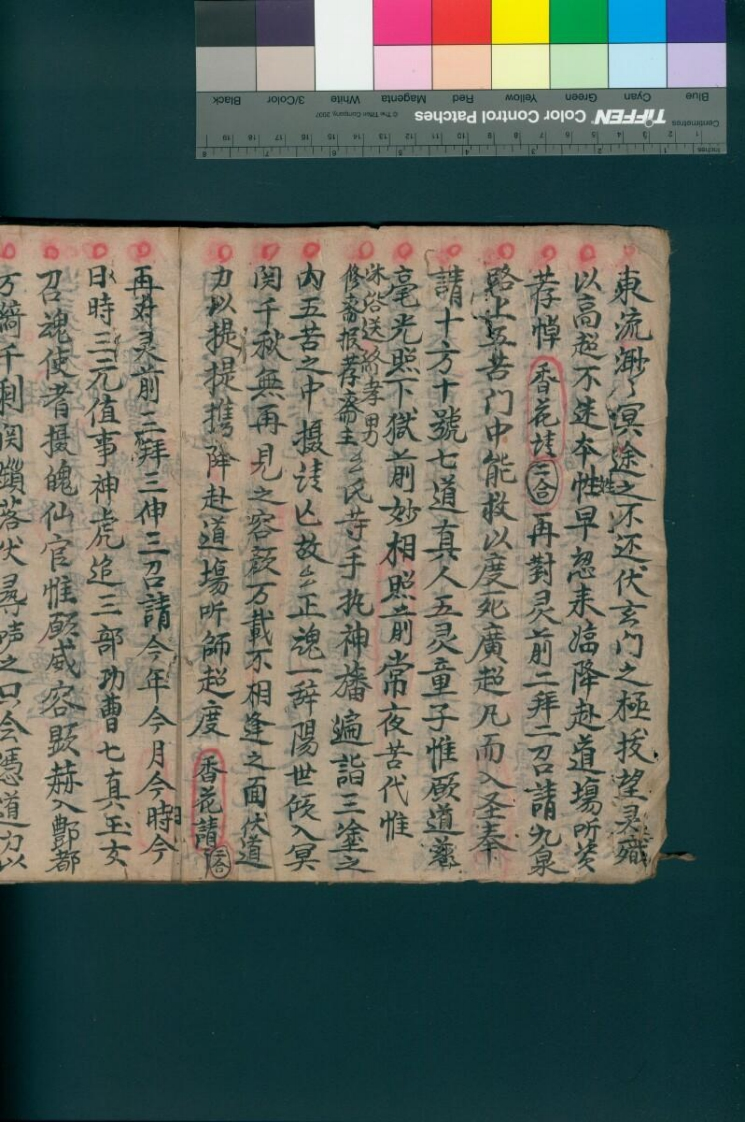 東流渺々冥途之不还伏玄门之極拔望灵
以高超不迷本性早忽来临降赴道場听
荐悼 香花请 三合 再對灵前二拜二召請九泉
路上五苦门中能救以度死廣超凡而入圣奉
請十方十號七道真人五灵童子惟願道
毫光照下獄前妙相照前常夜苦代惟
咊啓送終孝男
修斋报荐斋主厶氏等手执神旛遍詣三塗之
内五苦之中摄请亡故厶正魂一辞陽世倐入冥
関千秋無再見之容顔万載不相逢之面伏道
力以提提携降赴道場听師超度 香花請 答
再對灵前三拜三伸三召請今年今月今時今
日時三元值事神虎追三部功曹七真玉女
召魂使者摄魄仙官惟願威容顕赫入酆都
方綺千利関鎖落伏尋声之只会憑道力以
Blue
Cyan
Green
Yellow
Red
Magenta
White
3/Color
Black
TIFFEN Color Control Patches
© The Tiffen Company, 2007
Centimetres
Inches
1 2 3 4 5 6 7 8 9 10 11 12 13 14 15 16 17 18 19
1 2 3 4 5 6 7 8